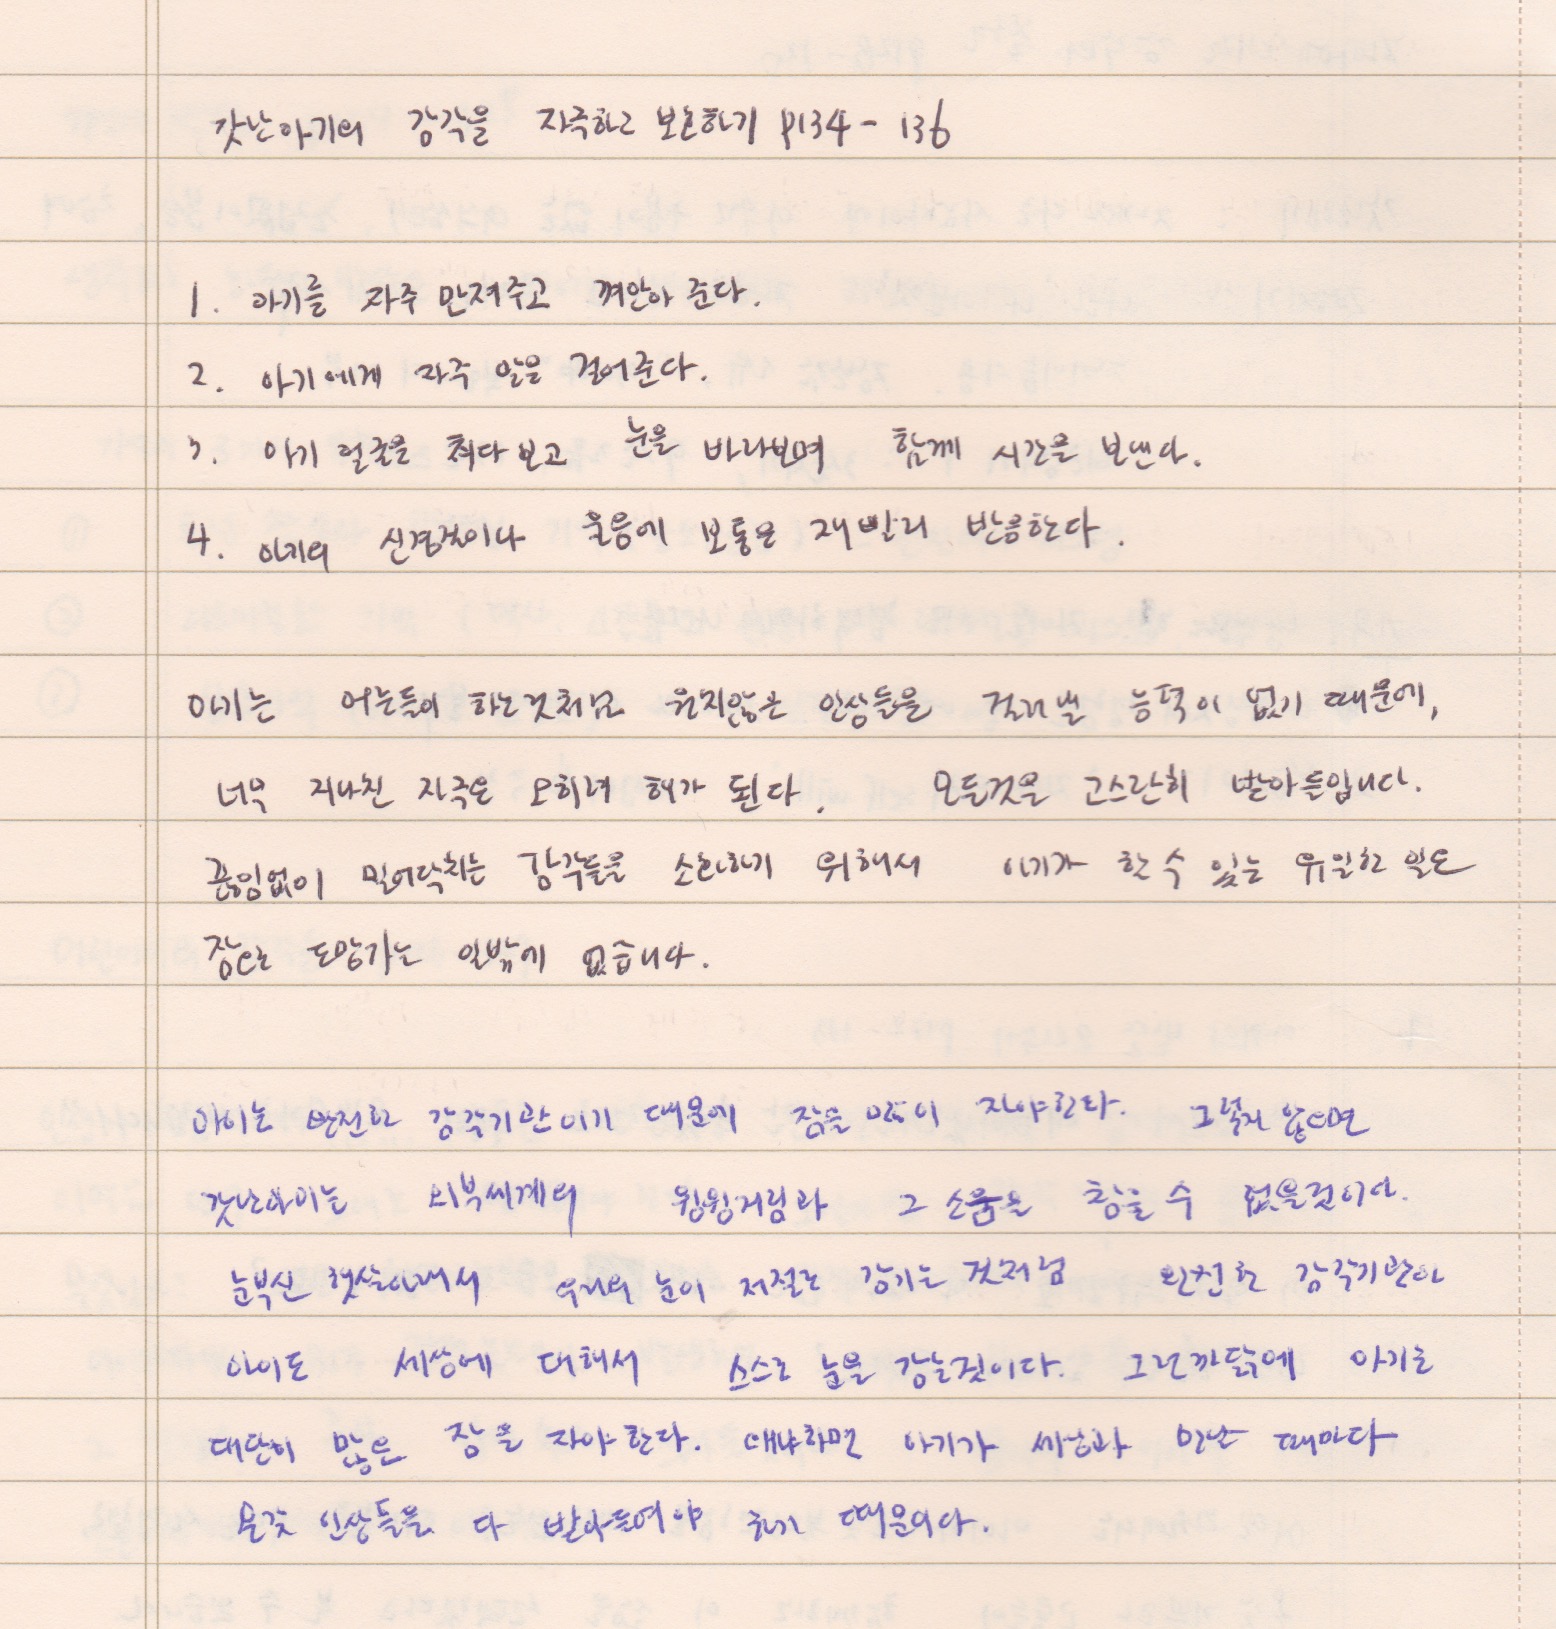 갓난아기의 감각을 자극하고 보호하기 p134 - 136
1. 아기를 자주 만져주고 껴안아 준다.
2. 아기에게 자주 말을 걸어준다.
3. 아기 얼굴을 쳐다보고 눈을 바라보며 함께 시간을 보낸다.
4. 아기의 신경질이나 울음에 보통은 재빨리 반응한다.
아기는 어른들이 하는것처럼 원치않은 인상들을 걸러낼 능력이 없기 때문에,
너무 지나친 자극은 오히려 해가 된다. 모든것을 고스란히 받아들입니다.
끊임없이 밀어닥치는 감각들을 소화하기 위해서 아기가 할 수 있는 유일한 일은
잠으로 도망가는 일밖에 없습니다.
아이는 완전한 감각기관이기 때문에 잠을 많이 자야한다. 그렇지 않으면
갓난아이는 외부세계의 윙윙거림과 그 소음을 참을 수 없을것이다.
눈부신 햇살아래서 우리의 눈이 저절로 감기는 것처럼 완전한 감각기관인
아이도 세상에 대해서 스스로 눈을 감는것이다. 그런까닭에 아기는
대단히 많은 잠을 자야한다. 왜냐하면 아기가 세상과 만날 때마다
온갖 인상들을 다 받아들여야 하기 때문이다.